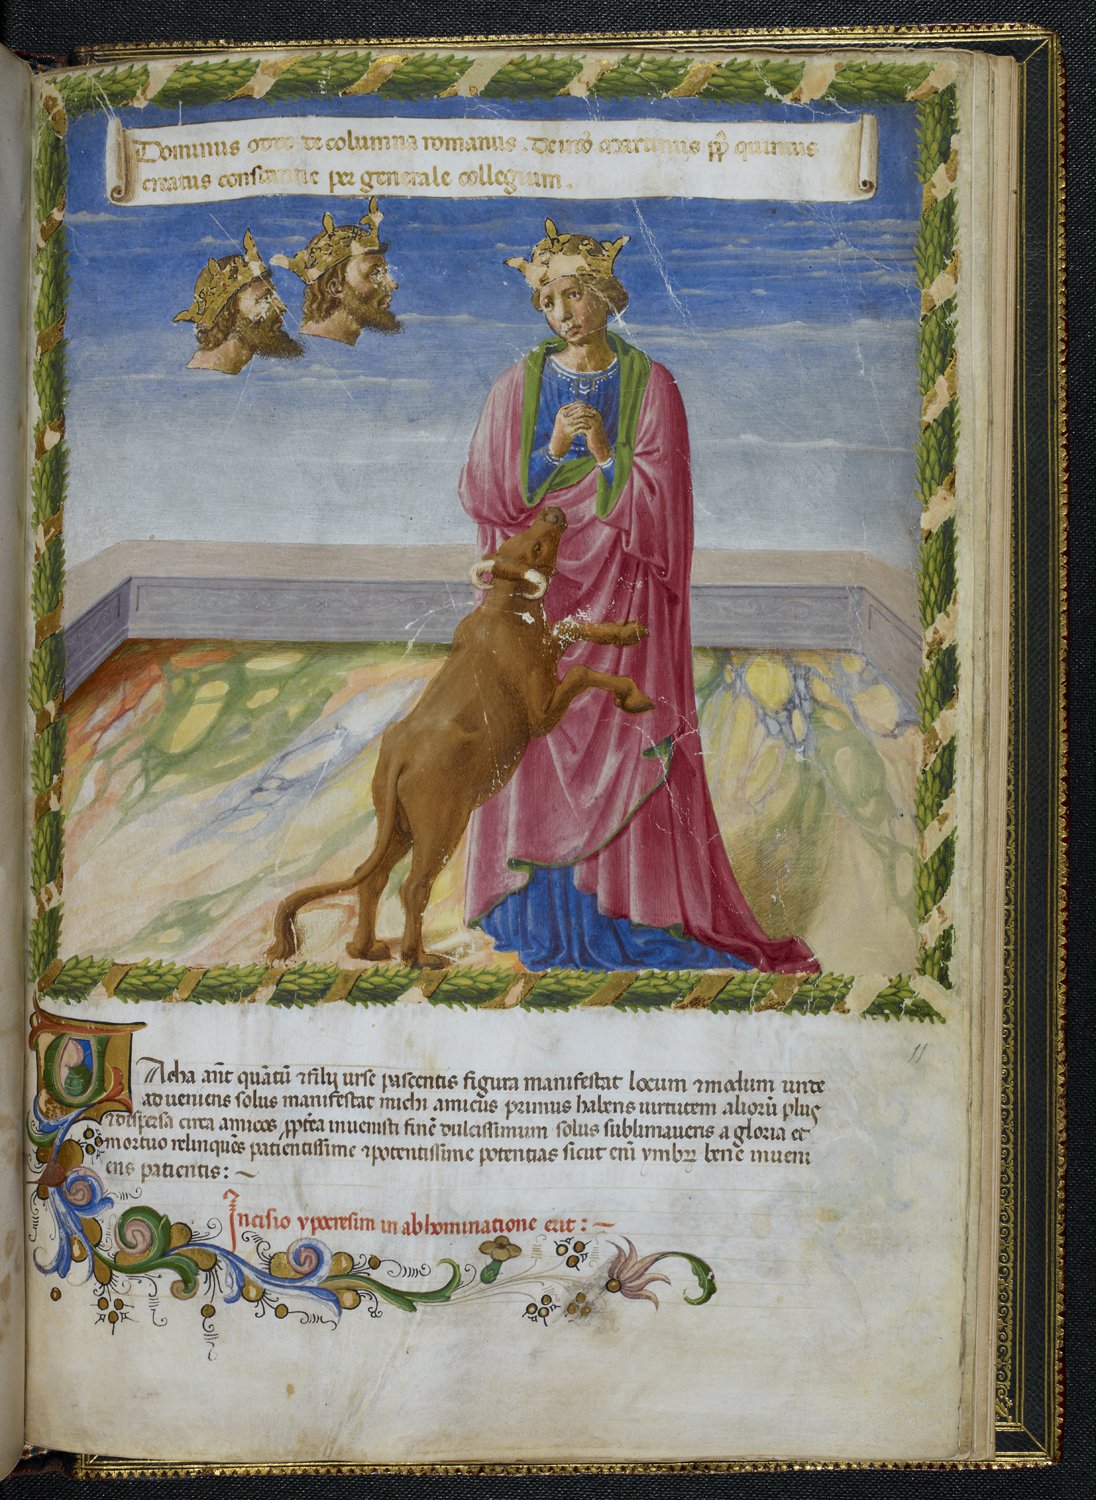 Dominus Otto de columna romanus. deinō Martinus pp̄ quintus
creatus constantie per generale collegium.
11
Vacha ant̄ quātū ⁊ filij urse pascentis figura manifestat locum ⁊ modum unde
adveniens solus manifestat michi amicus primus habens uirtutem aliorū plus
⁊ dispersa circa amicos inuenisti finē dulcissimum solus sublimaueris a gloria et
mortuo relinquēs patientissime ⁊ potentissime potentias sicut enī bene inueni
ens patientis: ~
Incisio ypocresim in abhominatione erit: ~